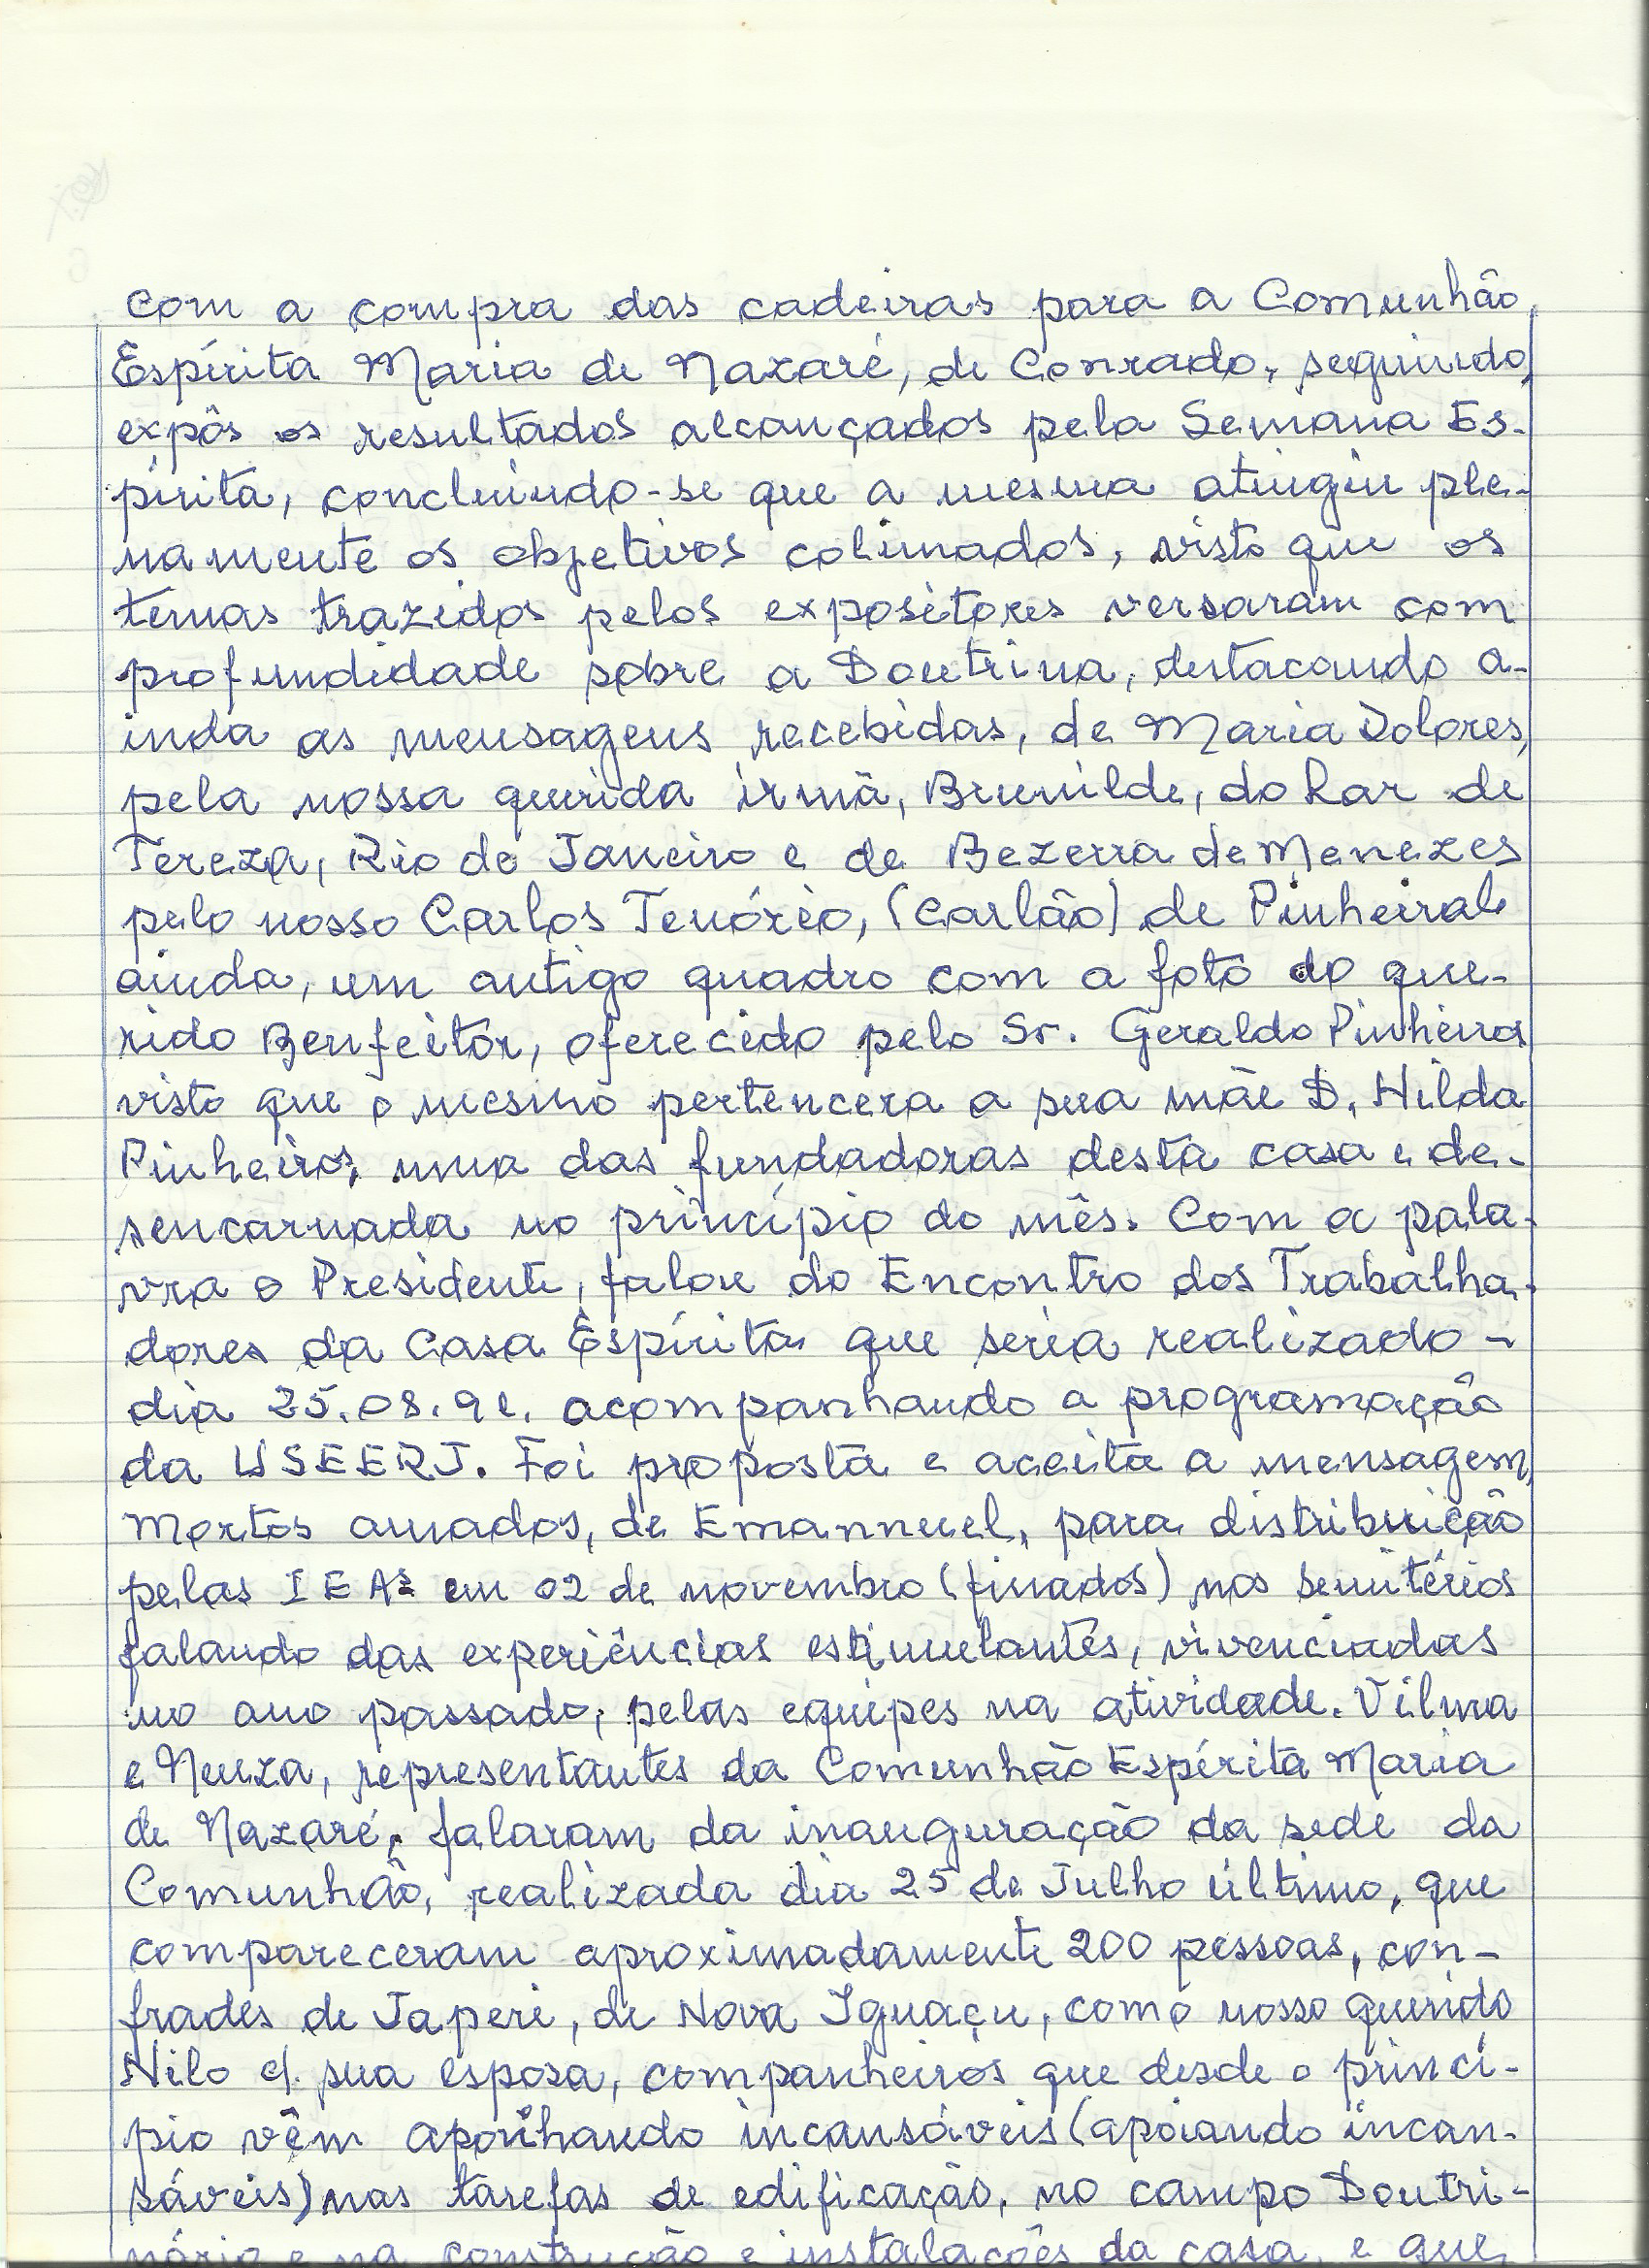 com a compra das cadeiras para a Comunhão
Espírita Maria de Nazaré, de Conrado, seguindo,
expôs os resultados alcançados pela Semana Es-
pírita, concluindo-se que a mesma atingiu ple-
namente os objetivos colimados, visto que os
temas trazidos pelos expositores versaram com
profundidade sobre a Doutrina, destacando a-
inda as mensagens recebidas, de Maria Dolores,
pela nossa querida irmã, Brunilde, do Lar de
Tereza, Rio de Janeiro e de Bezerra de Menezes
pelo nosso Carlos Tenório, (Carlão) de Pinheiral
ainda, um antigo quadro com a foto do que-
rido Benfeitor, oferecido pelo Sr. Geraldo Pinheiro
visto que o mesmo pertencera a sua mãe D. Hilda
Pinheiro, uma das fundadoras desta casa e de-
sencarnada no princípio do mês. Com a pala-
vra o Presidente, falou do Encontro dos Trabalha-
dores da Casa Espírita que seria realizado -
dia 25.08.91. acompanhando a programação
da USEERJ. Foi proposta e aceita a mensagem,
Mortos amados, de Emannuel, para distribuição
pelas IEAs em 02 de novembro (finados) nos semitérios
falando das experiências estimulantes, vivenciadas
no ano passado, pelas equipes na atividade. Vilma
e Neuza, representantes da Comunhão Espírita Maria
de Nazaré, falaram da inauguração da sede da
Comunhão, realizada dia 25 de Julho último, que
compareceram aproximadamente 200 pessoas, con-
frades de Japeri, de Nova Iguaçu, como nosso querido
Nilo c/ sua esposa, companheiros que desde o princí-
pio vêm incansáveis (apoiando incan-
sáveis) nas tarefas de edificação, no campo Doutri-
nário e na construção e instalações da casa, e que